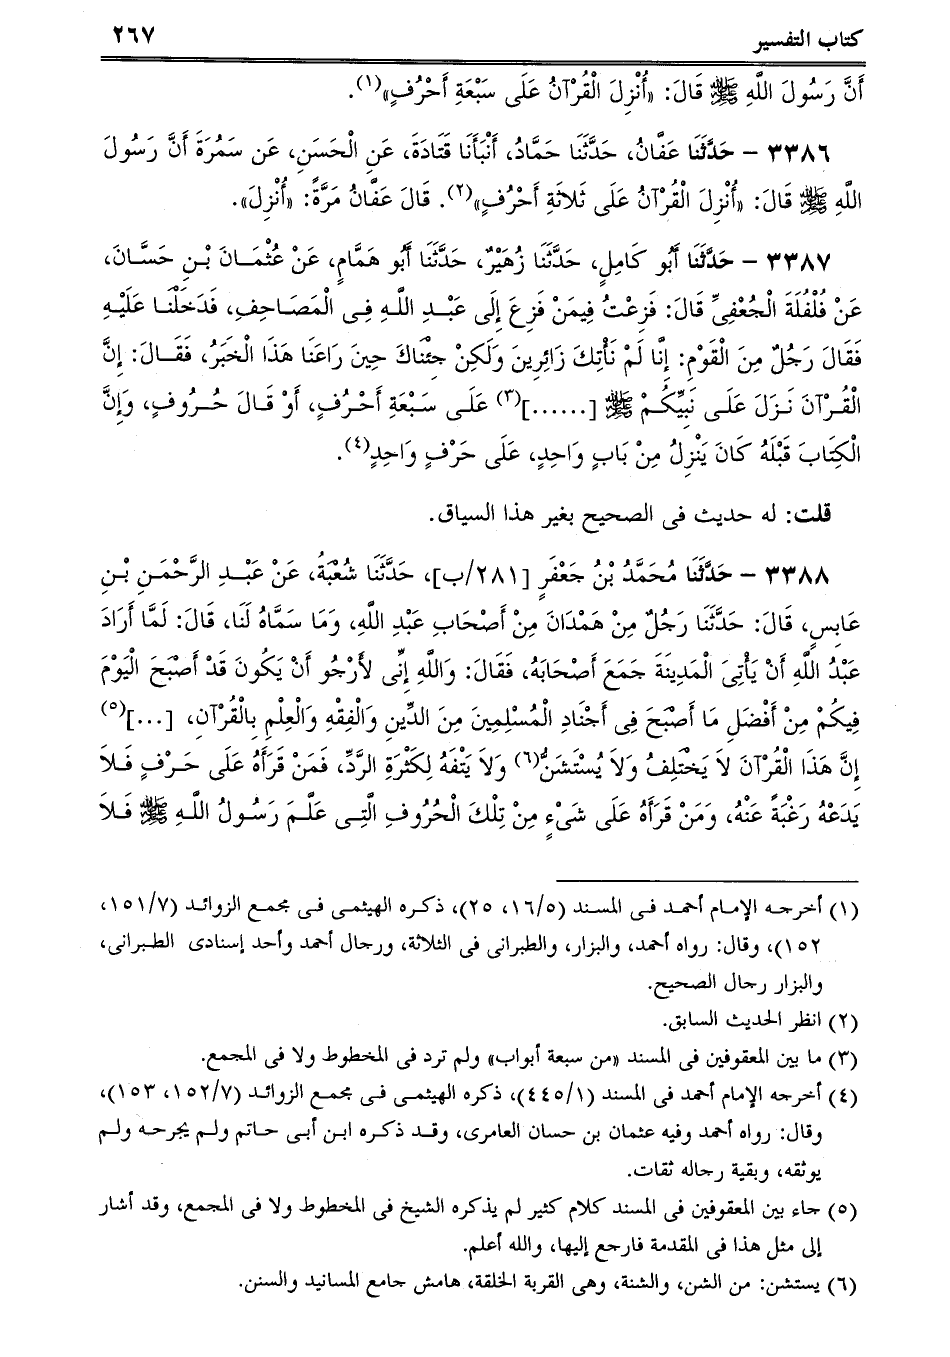 كتاب التفسير ٢٦٧
أَنَّ رَسُولَ اللَّهِ ﷺ قَالَ: «أُنْزِلَ الْقُرْآنُ عَلَى سَبْعَةِ أَحْرُفٍ»(١).
٣٣٨٦ - حَدَّثَنَا عَفَّانُ، حَدَّثَنَا حَمَّادُ، أَنْبَأَنَا قَتَادَةَ، عَنِ الْحَسَنِ، عَن سَمُرَةَ أَنَّ رَسُولَ
اللَّهِ ﷺ قَالَ: «أُنْزِلَ الْقُرْآنُ عَلَى ثَلاَثَةِ أَحْرُفٍ»(٢). قَالَ عَفَّانُ مَرَّةً: «أُنْزِلَ».
٣٣٨٧ - حَدَّثَنَا أَبُو كَامِلٍ، حَدَّثَنَا زُهَيْرٌ، حَدَّثَنَا أَبُو هَمَّامٍ، عَنْ عُثْمَانَ بْنِ حَسَّانَ،
عَنْ فُلْفُلَةَ الْجُعْفِىِّ قَالَ: فَزِعْتُ فِيمَنْ فَزِعَ إِلَى عَبْدِ اللَّهِ فِى الْمَصَاحِفِ، فَدَخَلْنَا عَلَيْهِ
فَقَالَ رَجُلٌ مِنَ الْقَوْمِ: إِنَّا لَمْ نَأْتِكَ زَائِرِينَ وَلَكِنْ جِئْنَاكَ حِينَ رَاعَنَا هَذَا الْخَبَرُ، فَقَالَ: إِنَّ
الْقُرْآنَ نَزَلَ عَلَى نَبِيِّكُمْ ﷺ [......](٣) عَلَى سَبْعَةِ أَحْرُفٍ، أَوْ قَالَ حُرُوفٍ، وَإِنَّ
الْكِتَابَ قَبْلَهُ كَانَ يَنْزِلُ مِنْ بَابٍ وَاحِدٍ، عَلَى حَرْفٍ وَاحِدٍ(٤).
قلت: له حديث فى الصحيح بغير هذا السياق.
٣٣٨٨ - حَدَّثَنَا مُحَمَّدُ بْنُ جَعْفَرٍ [٢٨١/ب]، حَدَّثَنَا شُعْبَةُ، عَنْ عَبْدِ الرَّحْمَنِ بْنِ
عَابِسٍ، قَالَ: حَدَّثَنَا رَجُلٌ مِنْ هَمْدَانَ مِنْ أَصْحَابِ عَبْدِ اللَّهِ، وَمَا سَمَّاهُ لَنَا، قَالَ: لَمَّا أَرَادَ
عَبْدُ اللَّهِ أَنْ يَأْتِىَ الْمَدِينَةَ جَمَعَ أَصْحَابَهُ، فَقَالَ: وَاللَّهِ إِنِّى لأَرْجُو أَنْ يَكُونَ قَدْ أَصْبَحَ الْيَوْمَ
فِيكُمْ مِنْ أَفْضَلِ مَا أَصْبَحَ فِى أَجْنَادِ الْمُسْلِمِينَ مِنَ الدِّينِ وَالْفِقْهِ وَالْعِلْمِ بِالْقُرْآنِ، [...](٥)
إِنَّ هَذَا الْقُرْآنَ لاَ يَخْتَلِفُ وَلاَ يُسْتَشَنُّ(٦) وَلاَ يَتْفَهُ لِكَثْرَةِ الرَّدِّ، فَمَنْ قَرَأَهُ عَلَى حَرْفٍ فَلاَ
يَدَعْهُ رَغْبَةً عَنْهُ، وَمَنْ قَرَأَهُ عَلَى شَىْءٍ مِنْ تِلْكَ الْحُرُوفِ الَّتِى عَلَّمَ رَسُولُ اللَّهِ ﷺ فَلاَ
(١) أخرجه الإمام أحمد فى المسند (١٦/٥، ٢٥)، ذكره الهيثمى فى مجمع الزوائد (١٥١/٧،
١٥٢)، وقال: رواه أحمد، والبزار، والطبرانى فى الثلاثة، ورجال أحمد وأحد إسنادى الطبرانى،
والبزار رجال الصحيح.
(٢) انظر الحديث السابق.
(٣) ما بين المعقوفين فى المسند «من سبعة أبواب» ولم ترد فى المخطوط ولا فى المجمع.
(٤) أخرجه الإمام أحمد فى المسند (٤٤٥/١)، ذكره الهيثمى فى مجمع الزوائد (١٥٢/٧، ١٥٣)،
وقال: رواه أحمد وفيه عثمان بن حسان العامرى، وقد ذكره ابن أبى حاتم ولم يجرحه ولم
يوثقه، وبقية رجاله ثقات.
(٥) جاء بين المعقوفين فى المسند كلام كثير لم يذكره الشيخ فى المخطوط ولا فى المجمع، وقد أشار
إلى مثل هذا فى المقدمة فارجع إليها، والله أعلم.
(٦) يستشن: من الشن، والشنة، وهى القربة الخلقة، هامش جامع المسانيد والسنن.